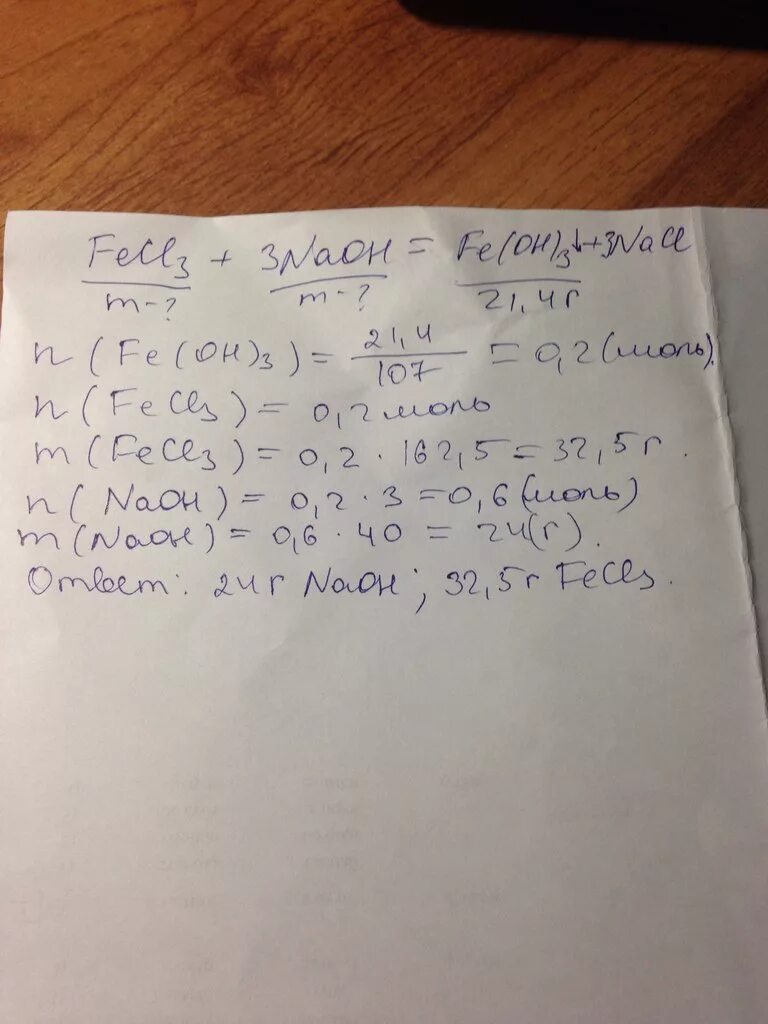 FeCl₃ + 3NaOH = Fe(OH)₃↓+3NaCl
m-? m-? 21,4г
n (Fe(OH)₃) = 21,4/107 = 0,2(моль).
n (FeCl₃) = 0,2 моль
m (FeCl₃) = 0,2 · 162,5 = 32,5 г.
n( NaOH) = 0,2 · 3 = 0,6 (моль)
m (NaOH) = 0,6 · 40 = 24(г).
Ответ: 24 г NaOH; 32,5 г FeCl₃.